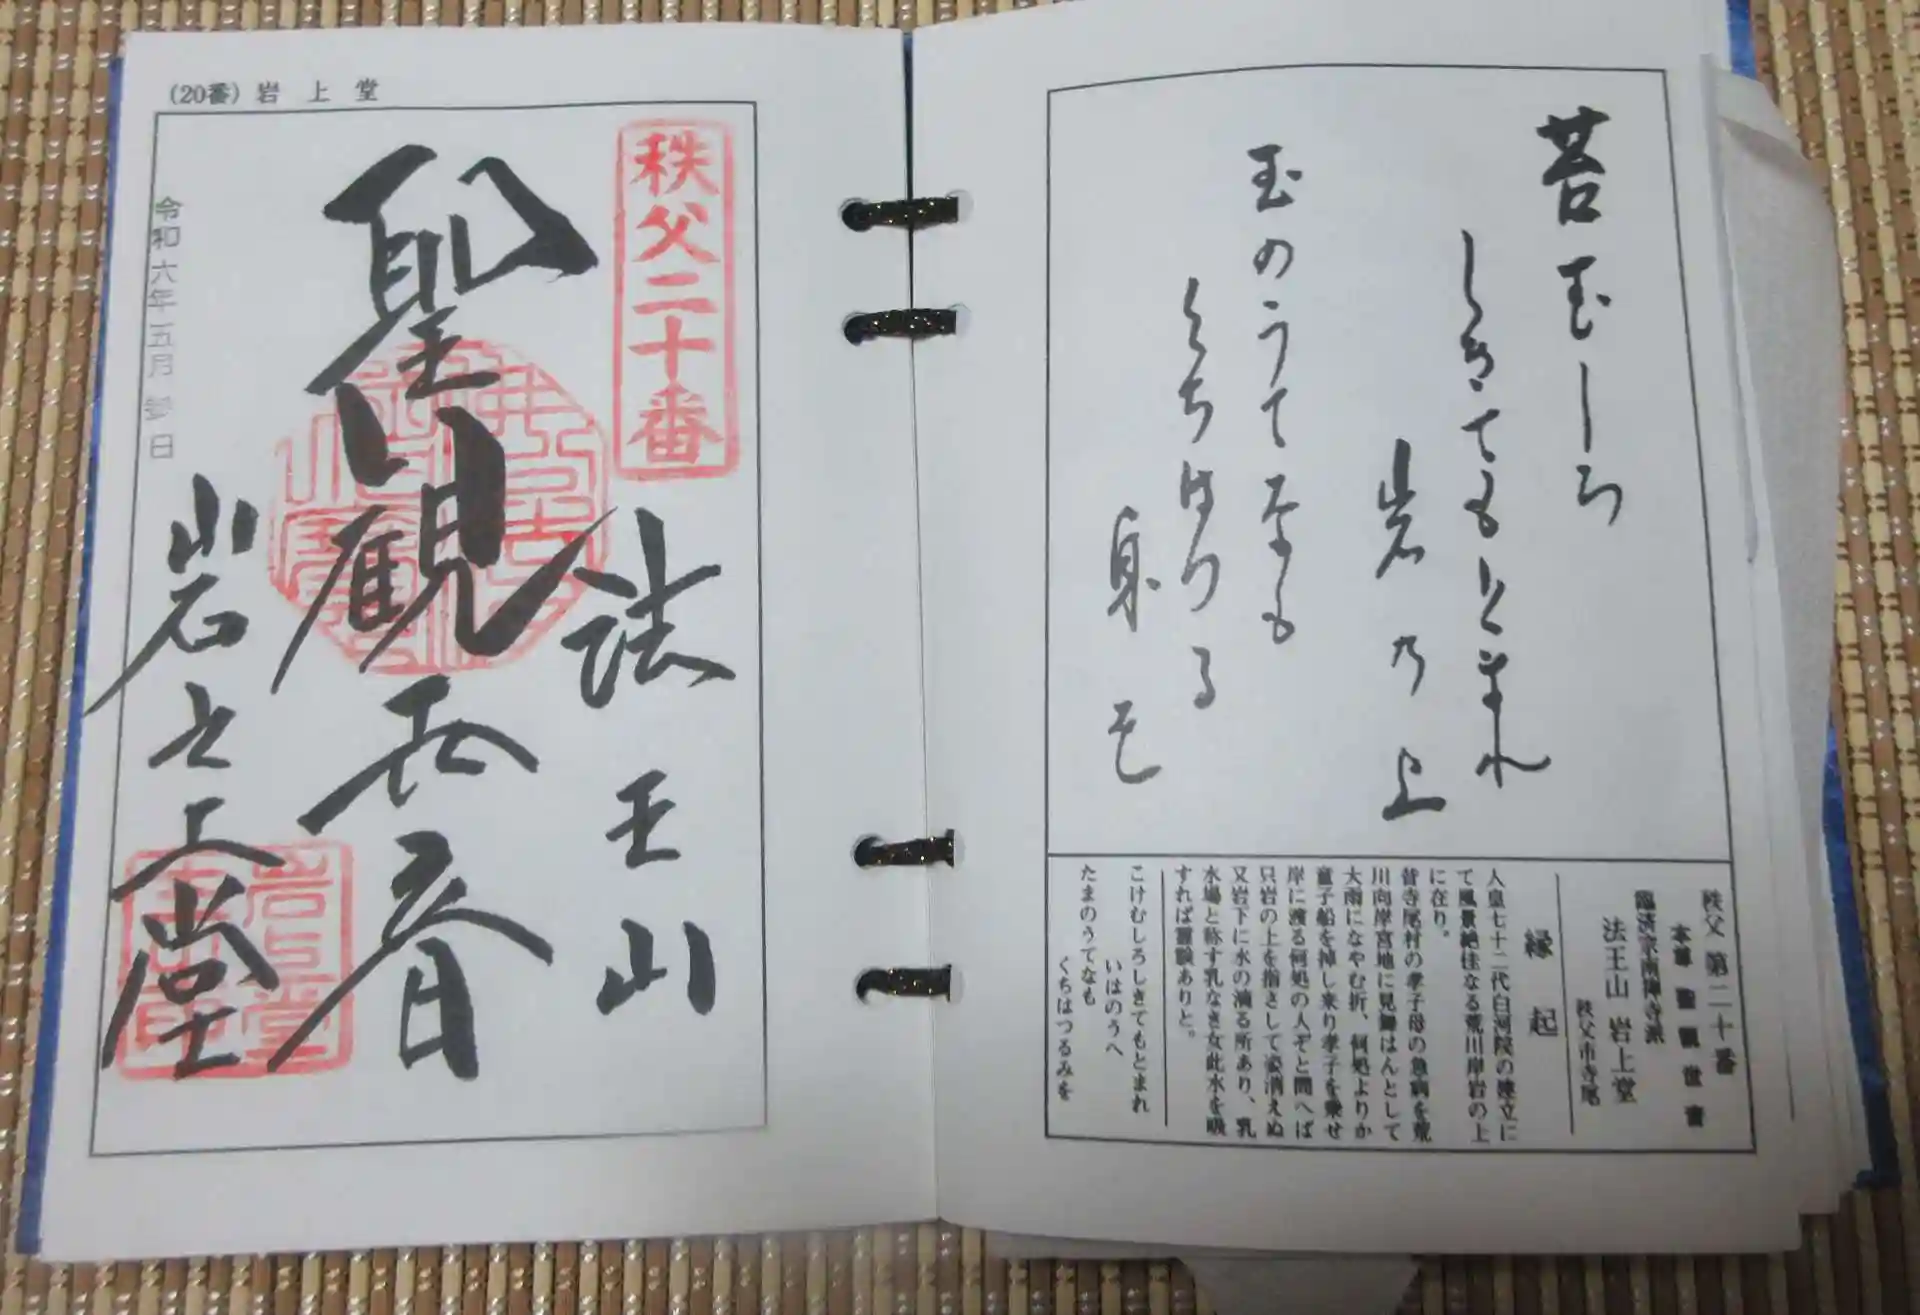 苔むしろ
しきてもとまれ
岩乃上
玉のうてなも
くちはつる
身を
秩父 第二十番
本尊 聖観世音
臨済宗南禅寺派
法王山 岩上堂
秩父市寺尾
縁起
人皇七十二代白河院の建立に
て風景絶佳なる荒川岸岩の上
に在り。
昔寺尾村の孝子母の急病を荒
川向岸宮地に見舞はんとして
大雨になやむ折、何処よりか
童子船を掉し来り孝子を乗せ
岸に渡る何処の人ぞと問へば
只岩の上を指さして姿消えぬ
又岩下に水の滴る所あり、乳
水場と称す乳なき女此水を吸
すれば霊験ありと。
こけむしろしきてもとまれ
いはのうへ
たまのうてなも
くちはつるみを
(20番) 岩上堂
秩父二十番
法王山
聖観世音
岩之上堂
令和六年五月
日